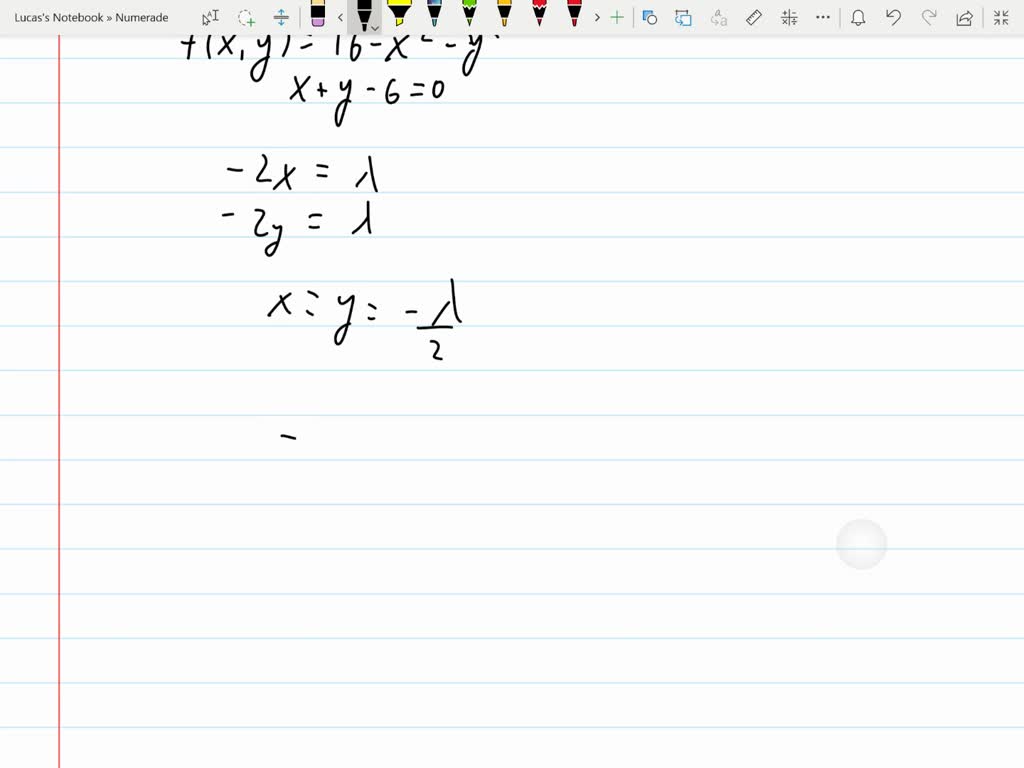 Lucas's Notebook » Numerade
f(x, y) = 16 - x² - y²
x + y - 6 = 0
- 2x = λ
- 2y = λ
x = y = - λ/2
-